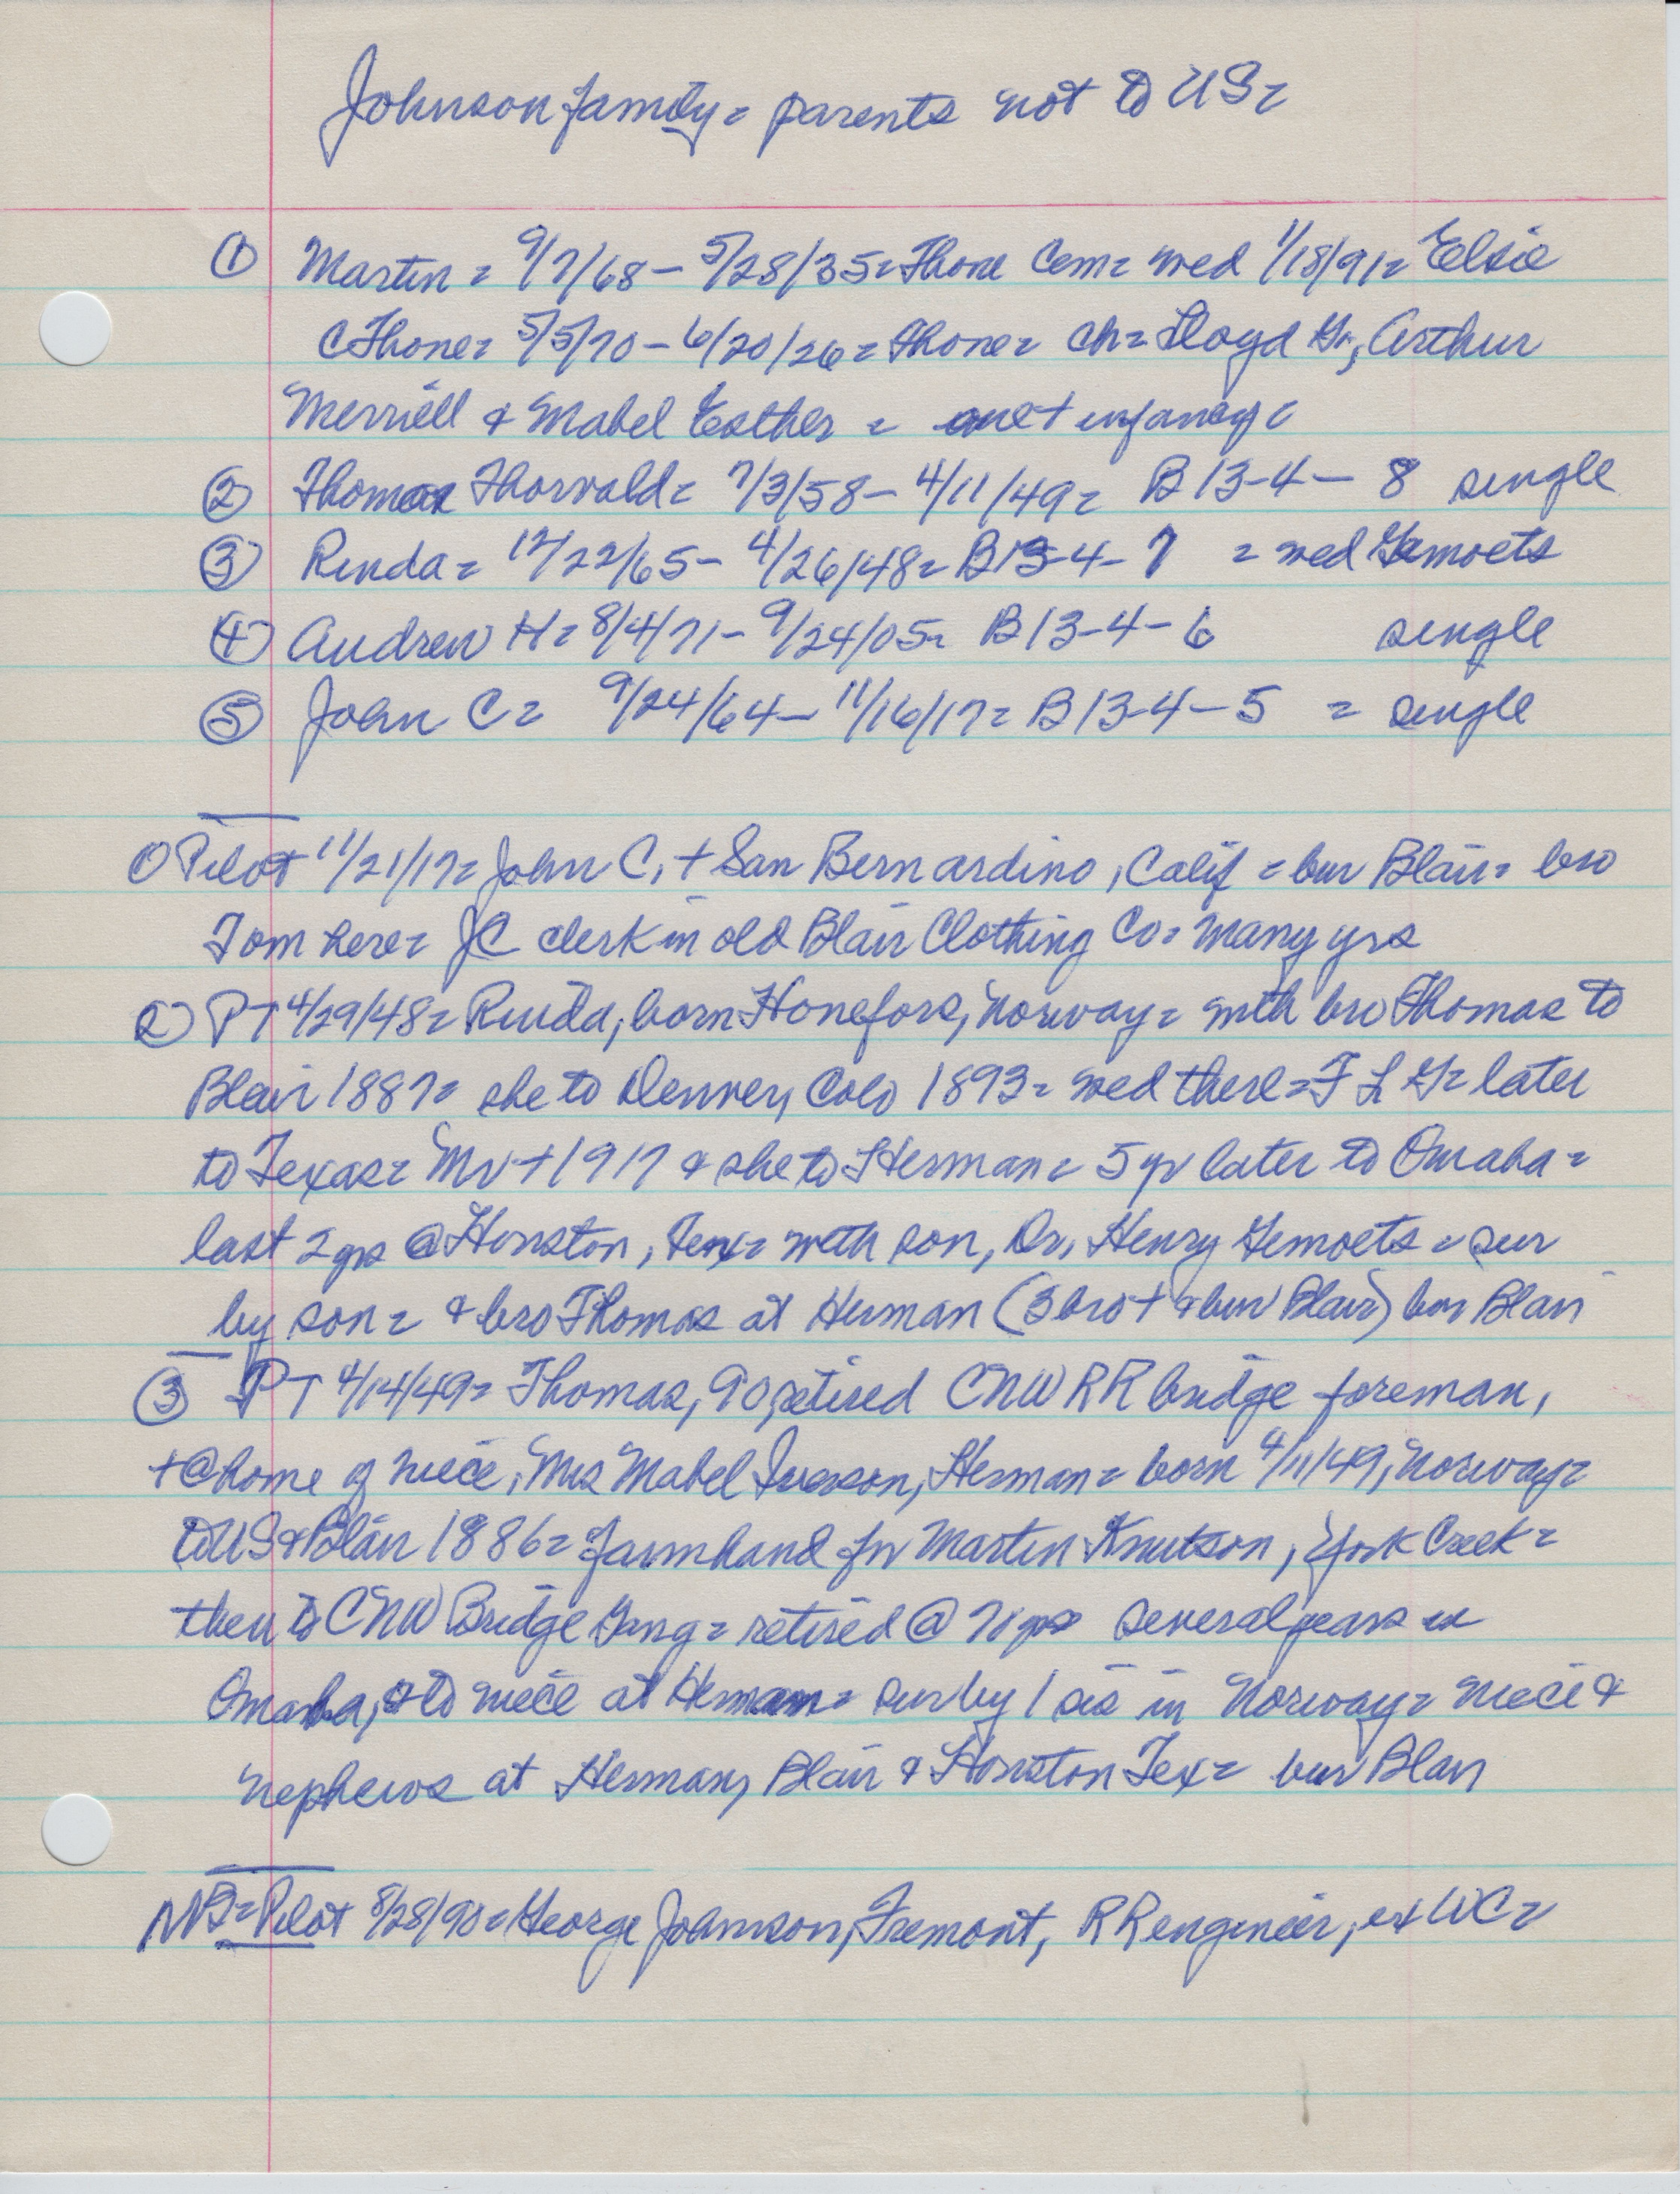 Johnson family = parents not to US =
① Martin = 9/7/68 – 5/28/35 = Thone Cem = wed 1/18/91 = Elsie
C Thone = 5/5/70 – 6/20/26 = Thone = ch = Lloyd Gr, Arthur
Merrill & Mabel Esther = one + infancy =
② Thomas Thorvald = 7/3/58 – 4/11/49 = B 13-4 – 8 single
③ Rinda = 12/22/65 – 4/26/48 = B 13-4 – 7 = wed Gemoets
④ Andrew H = 8/4/71 – 9/24/05 = B 13-4 – 6 single
⑤ John C = 9/24/64 – 11/16/17 = B 13-4 – 5 = single
① Pilot 11/21/17 = John C, + San Bernardino, Calif = bur Blair = bro
Tom here = JC clerk in old Blair Clothing Co = many yrs
② PT 4/29/48 = Rinda, born Honefors, Norway = with bro Thomas to
Blair 1887 = she to Denver, Colo 1893 = wed there = F L G = later
to Texas = Mr + 1917 & she to Herman = 5 yr later to Omaha =
last 2 yrs @ Houston, Tex = with son, Dr, Henry Gemoets = sur
by son = & bro Thomas at Herman (3 bro + & bur Blair) bur Blair
③ PT 4/14/49 = Thomas, 90, retired CNW RR bridge foreman,
+ @ home of niece, Mrs Mabel Iverson, Herman = born 4/11/49, Norway =
to US & Blair 1886 = farmhand for Martin Knutson, York Creek =
then to CNW Bridge Gang = retired @ 70 yrs several years in
Omaha, & to niece at Herman = sur by 1 sis in Norway = niece &
nephews at Herman, Blair & Houston Tex = bur Blair
NB = Pilot 8/28/90 = George Johnson, Fremont, RR engineer, ex WC =